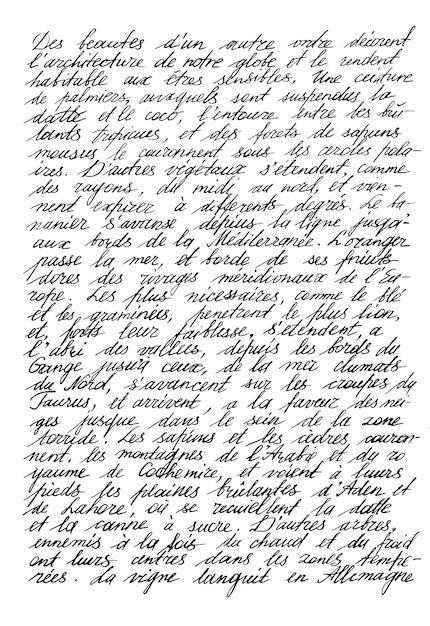 Des beautes d'un autre ordre décorent
l'architecture de notre globe et le rendent
habitable aux êtres sensibles. Une ceinture
de palmiers, auxquels sont suspendus la
datte et le coco, l'entoure entre les brû-
lants tropiques, et des forets de sapins
mousus le couronnent sous les cercles pola-
ires. D'autres végétaux s'étendent, comme
des rayons, du midi au nord, et vien-
nent expirer à differents degrés. Le ba-
nanier s'avanse depuis la ligne jusqa'-
aux bords de la Mediterranée. L'oranger
passe la mer, et borde de ses fruits
dores des rivages méridionaux de l'Eu-
rope. Les plus nicessaires, comme le blé
et les graminées, penetrent le plus lion,
et, forts leur faiblesse, s'étendent, a
l'abri des vallées, depuis les bords du
Gange jusqu'a ceux, de la mer
du Nord, s'avancent sur les croupes du
Taurus, et arrivent, a la faveur des nei-
ges jusque dans le sein de la zone
torride. Les sapins et les cèdres couron-
nent, les montagnes de l'Arabie et du ro
yaume de Cachemire, et voient à leurs
pieds les plaines brûlantes d'Aden et
de Lahore, où se recueillent la datte
et la canne à sucre. D'autres arbres,
ennemis à la fois du chaud et du froid
ont leurs centres dans les zones tempe-
rées. La vigne languit en Allemagne